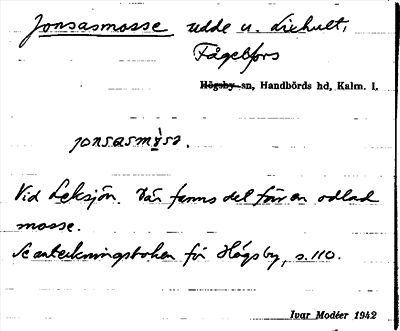 Jonsasmosse udde u. Liehult,
Fågelfors
Högsby sn, Handbörds hd, Kalm. l.
jonsasmȯ̀sə.
Vid Leksjön. Där fanns det förr en odlad
mosse.
Se anteckningsboken för Högsby, s. 110.
Ivar Modéer 1942